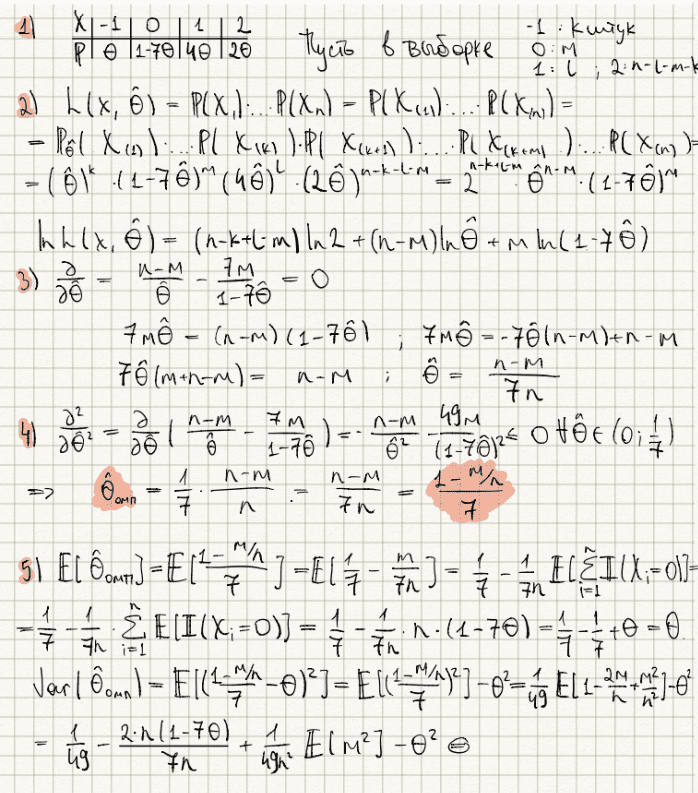 1) X | -1 | 0 | 1 | 2
P | θ | 1-7θ | 4θ | 2θ
Пусть в выборке
-1 : K штук
0 : M
1 : L ; 2: n-L-M-K
2) L(x, θ̂) = P(X₁)·...·P(Xₙ) = P(X₍₁₎)·...·P(X₍ₙ₎) =
= P_θ̂(X₍₁₎)·...·P(X₍ₖ₎)·P(X₍ₖ₊₁₎)·...·P(X₍ₖ₊ₘ₎)·...·P(X₍ₙ₎) =
= (θ̂)^K·(1-7θ̂)^M (4θ̂)^L·(2θ̂)^(n-K-L-M) = 2^(n-K+L-M)·θ̂^(n-M)·(1-7θ̂)^M
ln L(x, θ̂) = (n-K+L-M) ln2 + (n-M) ln θ̂ + M ln(1-7θ̂)
3) ∂/∂θ̂ = (n-M)/θ̂ - 7M/(1-7θ̂) = 0
7Mθ̂ = (n-M)(1-7θ̂) ; 7Mθ̂ = -7θ̂(n-M)+n-M
7θ̂(M+n-M) = n-M ; θ̂ = (n-M)/7n
4) ∂²/∂θ̂² = ∂/∂θ̂ ((n-M)/θ̂ - 7M/(1-7θ̂)) = -(n-M)/θ̂² - 49M/(1-7θ̂)² ≤ 0 ∀θ̂ ∈ (0; 1/7)
=> θ̂омп = 1/7 · (n-M)/n = (n-M)/7n = (1-M/n)/7
5) E[θ̂омп] = E[(1-M/n)/7] = E[1/7 - M/7n] = 1/7 - 1/7n E[∑ⁿᵢ₌₁ I(Xᵢ=0)] =
= 1/7 - 1/7n · ∑ⁿᵢ₌₁ E[I(Xᵢ=0)] = 1/7 - 1/7n · n·(1-7θ) = 1/7 - 1/7 + θ = θ
Var(θ̂омп) = E[((1-M/n)/7 - θ)²] = E[((1-M/n)/7)²] - θ² = 1/49 E[1 - 2M/n + M²/n²] - θ²
= 1/49 - 2·n(1-7θ)/7n + 1/49n² E[M²] - θ² ⊖